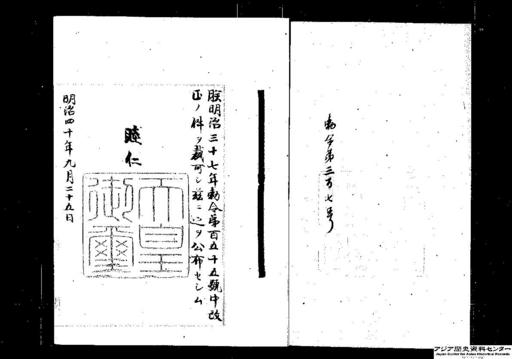 勅令第三百七号
朕明治三十七年勅令第百五十五號中改
正ノ件ヲ裁可シ茲ニ之ヲ公布セシム
睦仁
天皇
御璽
明治四十年九月二十五日
アジア歴史資料センター
Japan Center for Asian Historical Records